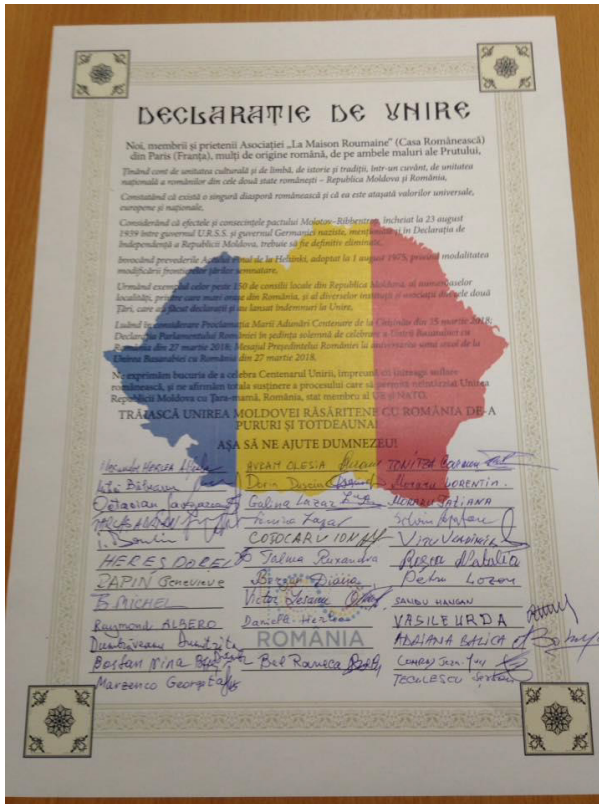 DECLARATIE DE UNIRE
Noi, membrii și prietenii Asociației „La Maison Roumaine” (Casa Românească)
din Paris (Franța), mulți de origine română, de pe ambele maluri ale Prutului,
Ținând cont de unitatea culturală și de limbă, de istorie și tradiții, într-un cuvânt, de unitatea
națională a românilor din cele două state românești – Republica Moldova și România,
Constatând că există o singură diasporă românească și că ea este atașată valorilor universale,
europene și naționale,
Considerând că efectele și consecințele pactului Molotov-Ribbentrop, încheiat la 23 august
1939 între guvernul U.R.S.S. și guvernul Germaniei naziste, menționată și în Declarația de
Independență a Republicii Moldova, trebuie să fie definitiv eliminate,
Invocând prevederile Actului Final de la Helsinki, adoptat la 1 august 1975, privind modalitatea
modificării frontierelor țărilor semnatare,
Urmând exemplul celor peste 150 de consilii locale din Republica Moldova, al numeroaselor
localități, printre care mari orașe din România, și al diverselor instituții și asociații din cele două
Țări, care au făcut declarații și au lansat îndemnuri la Unire,
Luând în considerare Proclamația Marii Adunări Centenare de la Chișinău din 25 martie 2018;
Declarația Parlamentului României în ședința solemnă de celebrare a Unirii Basarabiei cu
România din 27 martie 2018; Mesajul Președintelui României la aniversarea unui secol de la
Unirea Basarabiei cu România din 27 martie 2018,
Ne exprimăm bucuria de a celebra Centenarul Unirii, împreună cu întreaga suflare
românească, și ne afirmăm totala susținere a procesului care să permită neîntârziat Unirea
Republicii Moldova cu Țara-mamă, România, stat membru al UE și NATO.
TRĂIASCĂ UNIREA MOLDOVEI RĂSĂRITENE CU ROMÂNIA DE-A
PURURI ȘI TOTDEAUNA!
AȘA SĂ NE AJUTE DUMNEZEU!
HERLEA AVRAM OLESIA TONITZA Carmen
Dorin FLORENTIN
Octavian Galina Lazar MORARU TATIANA
Lazar
COJOCARU ION
HERES DOREL Talma Ruxandra Natalia
PAPIN Genevieve Diana Petru Lozan
B MICHEL Victor SANDU HANGAN
Raymond ALBERO Daniela Herlea VASILE URDA
ROMÂNIA
Dumitrița ADRIANA BALICA
Bostan Nina Bel Raluca
Marzenco Georgeta TECULESCU